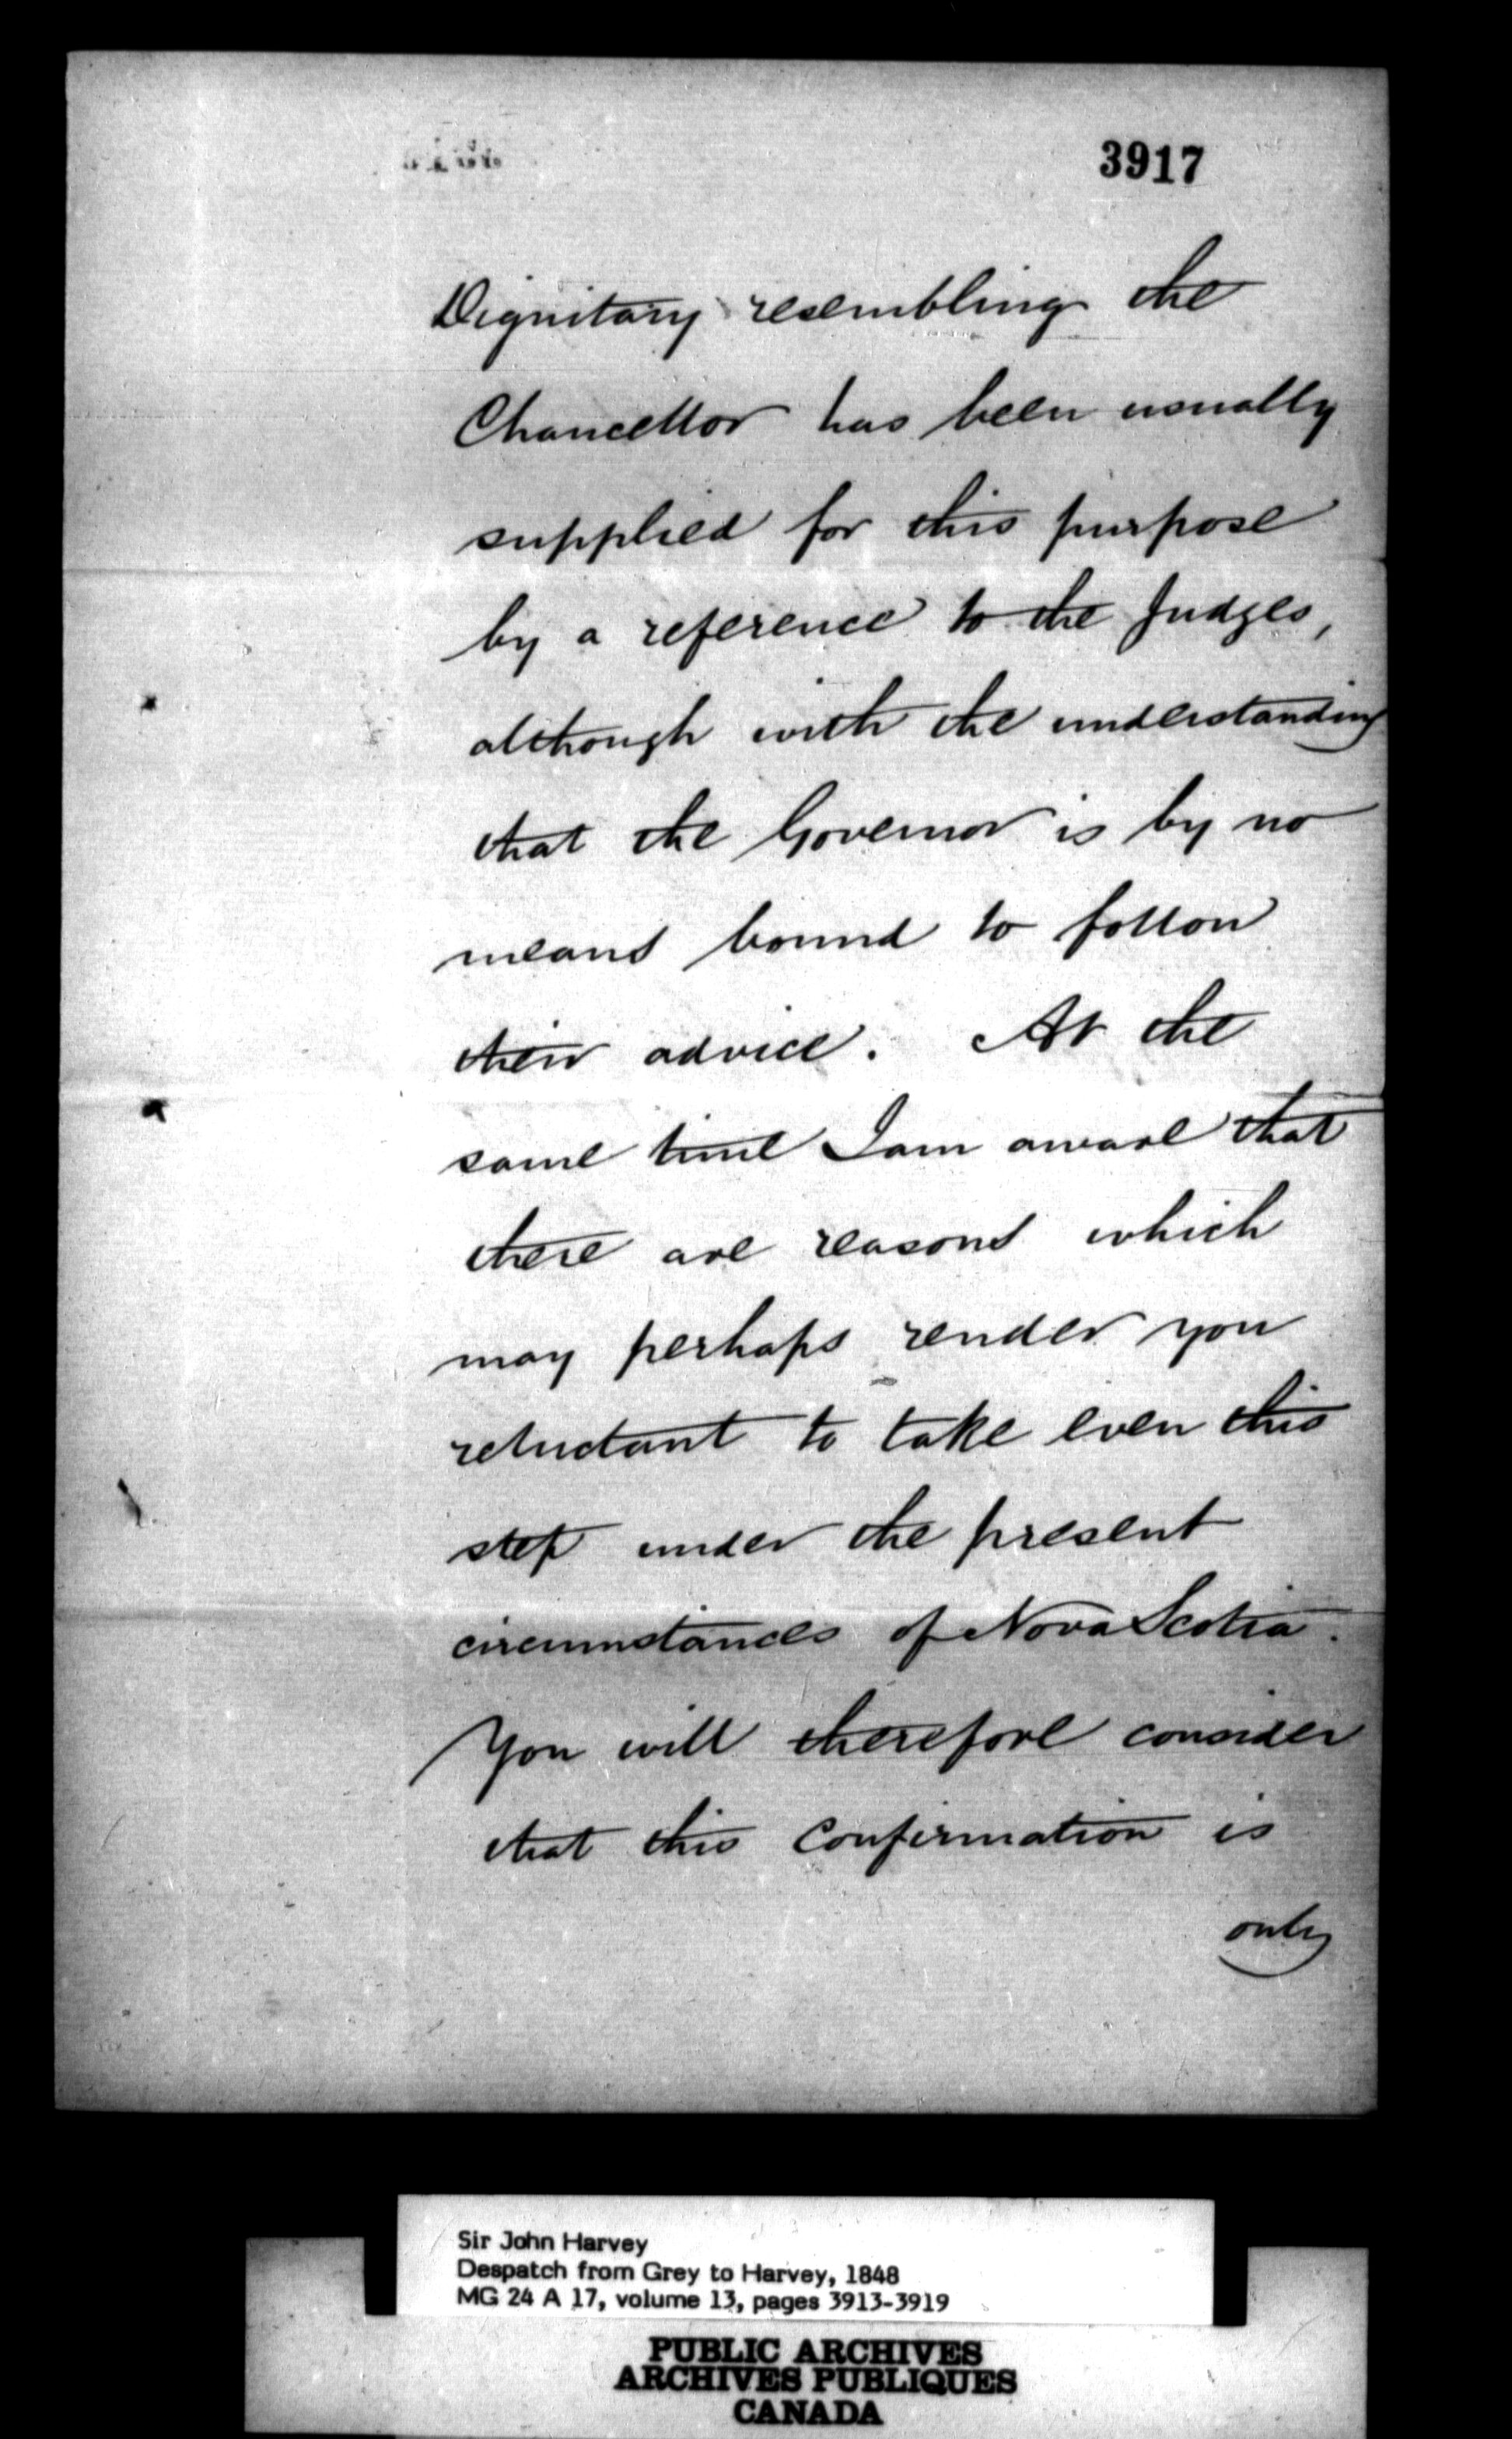 3917
Dignitary resembling the
Chancellor has been usually
supplied for this purpose
by a reference to the Judges,
although with the understanding
that the Governor is by no
means bound to follow
their advice. At the
same time I am aware that
there are reasons which
may perhaps render you
reluctant to take even this
step under the present
circumstances of Nova Scotia.
You will therefore consider
that this confirmation is
only
Sir John Harvey
Despatch from Grey to Harvey, 1848
MG 24 A 17, volume 13, pages 3913-3919
PUBLIC ARCHIVES
ARCHIVES PUBLIQUES
CANADA